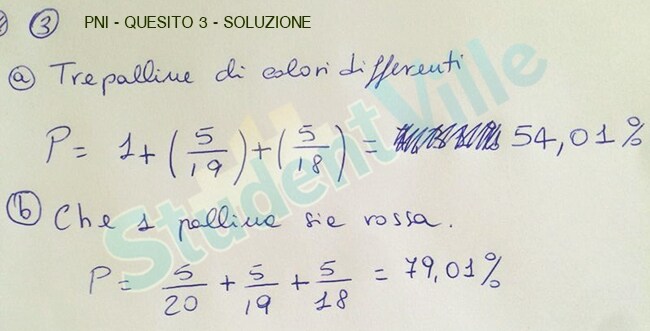 ③ PNI - QUESITO 3 - SOLUZIONE
ⓐ Tre palline di colori differenti
P = 1 + (5/19) + (5/18) = 54,01%
ⓑ Che 1 pallina sia rossa.
P = 5/20 + 5/19 + 5/18 = 79,01%
StudentVille